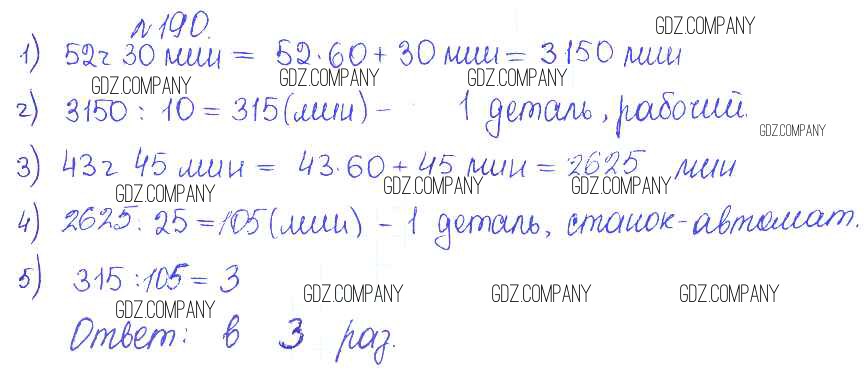 №190.
GDZ.COMPANY
1) 52ч 30 мин = 52·60 + 30 мин = 3150 мин
GDZ.COMPANY GDZ.COMPANY GDZ.COMPANY
2) 3150 : 10 = 315 (мин) - 1 деталь, рабочий.
GDZ.COMPANY
3) 43ч 45 мин = 43·60 + 45 мин = 2625 мин
GDZ.COMPANY GDZ.COMPANY GDZ.COMPANY
4) 2625 : 25 = 105 (мин) - 1 деталь, станок-автомат.
5) 315 : 105 = 3
GDZ.COMPANY GDZ.COMPANY GDZ.COMPANY GDZ.COMPANY
Ответ: в 3 раз.